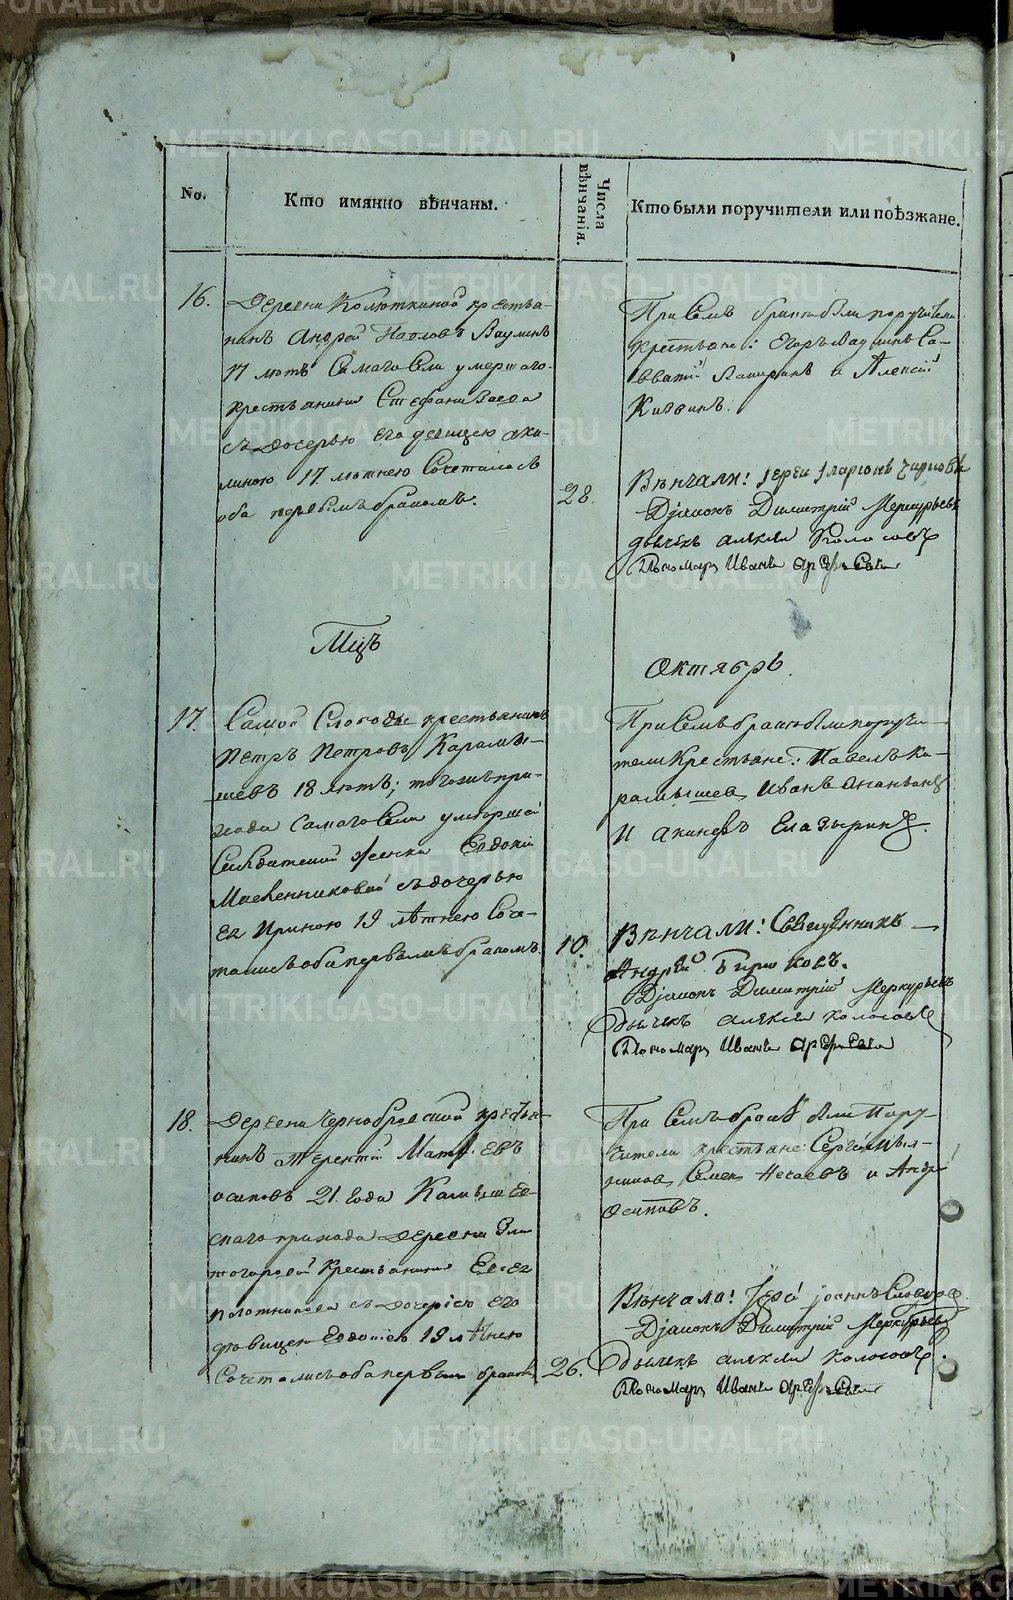 No.
Кто имянно вѣнчаны.
Числа вѣнчанія.
Кто были поручители или поѣзжане.
16.
Деревни Колюткиной крестья-
нинъ Андрей Павловъ Ваулинъ
17 лѣтъ Самаго Села умершаго
крестьянина Стефана
съ дочерью его девицею Аку-
линою 17 лѣтнею Сочетались
оба первымъ бракомъ.
28.
При Семъ бракѣ были поручители
крестьяне: Егоръ Ваулинъ Са-
ватій и Алексій
Вѣнчали: Іерей Іларіонъ
Діаконъ Димитрій Меркурьевъ
дьячекъ алексѣй Колосовъ
Пономарь Иванъ
Мцъ
Октябрь.
17.
Самой Слободы крестьянинъ
Петръ Петровъ Карамы-
шевъ 18 лѣтъ; тогожъ при-
хода Самаго Села умершей
Салдатской женки Евдокіи
Масленниковой съ дочерью
Ея Ириною 19 лѣтнею Соче-
тались оба первымъ бракомъ.
10.
При Семъ бракѣ были поручи-
тели Крестьяне: Павелъ Ка-
рамышевъ, Иванъ Ананьинъ
и Глазыринъ.
Вѣнчали: Священникъ
Андрей Бирюковъ.
Діаконъ Димитрій Меркурьевъ
дьячекъ алексѣй колосовъ
Пономарь Иванъ
18.
Деревни Чернобровской кресть-
нинъ Терентій Матѳеевъ
осиповъ 21. года
скаго прихода Деревни Зла
тогоровой Крестьянина Евсея
Плотникова съ дочерью его
дѣвицею Евдокіею 19 лѣтнею
Сочетались оба первымъ бракомъ
26.
При Семъ бракѣ были Пору-
чители крестьяне: Сергѣй Мыль-
никовъ, Семенъ Нечаевъ и Андрей
Осиповъ.
Вѣнчали: Іерей Іоаннъ
Діаконъ Димитрій Меркурьевъ
дьячекъ алексѣй колосовъ.
Пономарь Иванъ
METRIKI.GASO-URAL.RU